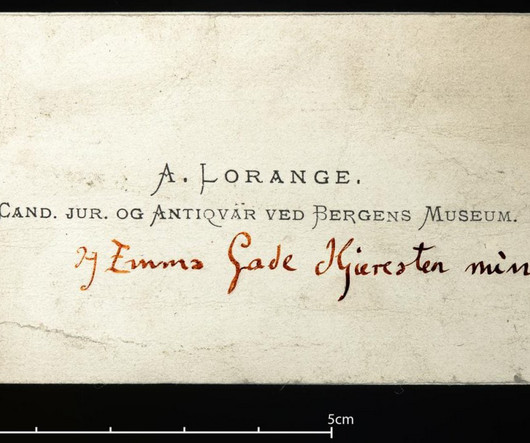 A. LORANGE.
CAND. JUR. OG ANTIQVÄR VED BERGENS MUSEUM.
Emma Gade Kjeresten min
5cm